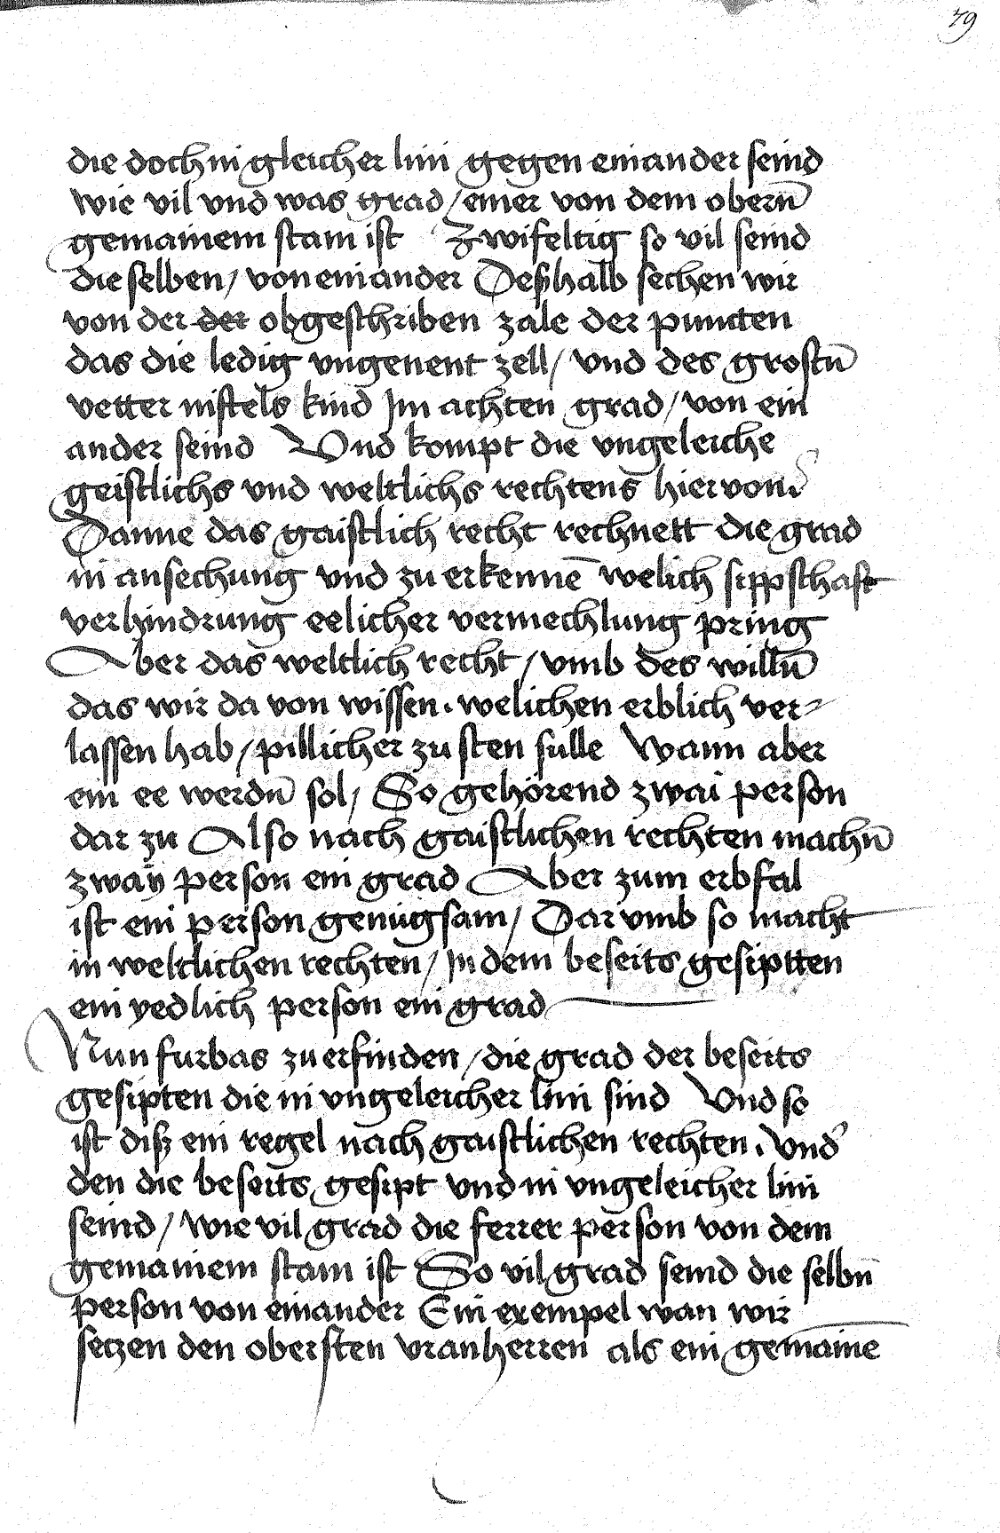 79
die doch in gleicher lini gegen einander seind
wie vil vnd was grad / einer von dem obern̄
gemainem stam ist Zwifeltig so vil seind
die selben / von einander Deszhalb sechen wir
von der der obgeschriben zale der puncten
das die ledig vngenent zell / vnd des grostn̄
vetter niftels kind Im achten grad / von ein
ander seind Vnd kompt die vngeleiche
geistlichs vnd weltlichs rechtens hiervon
Danne das gaistlich recht rechnett die grad
in ansechung vnd zu erkennē welich sippschaft
verhindrung eelicher vermechlung pring
Aber das weltlich recht / vmb des willn̄
das wir da von wissen . welichen erblich ver⸗
lassen hab / pillicher zu sten sulle Wann aber
ein ee werdn̄ sol / So gehörend zwai person
dar zu Also nach gaistlichen rechten machn̄
zwaÿ person ein grad Aber zum erbfal
ist ein person genugsam / Dar vmb so macht
in weltlichen rechten / In dem beseits gesiptten
ein yedlich person ein grad
Nun furbas zu erfinden / die grad der beseits
gesipten die in vngeleicher lini sind Vnd so
ist disz ein regel nach gaistlichen rechten . Vnd
den die beseits gesipt vnd in vngeleicher lini
seind / wie vil grad die ferrer person von dem
gemainem stam ist So vil grad seind die selbn̄
person von einander Ein exempel wan wir
setzen den obersten vranherren als ein gemaine